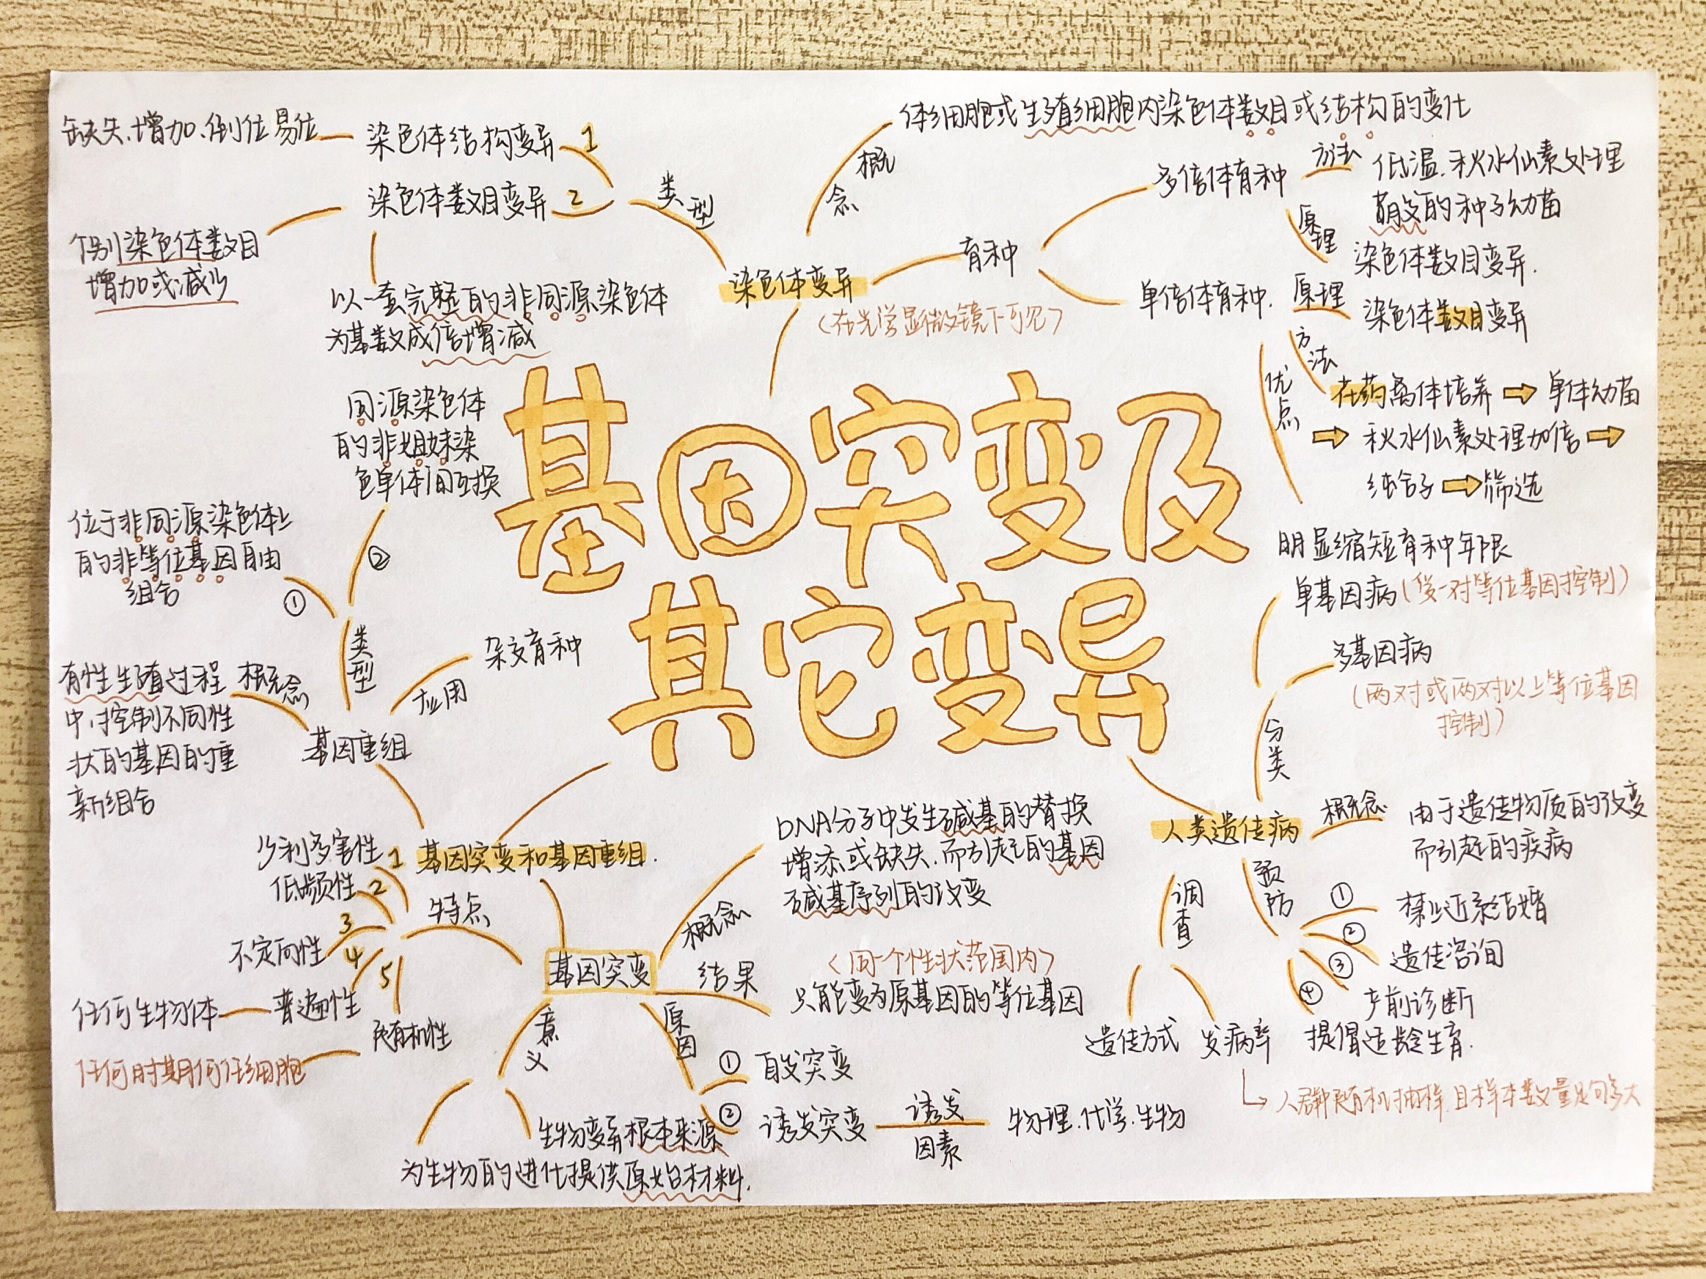 基因突变及
其它变异
染色体变异
(在光学显微镜下可见)
概念
体细胞或生殖细胞内染色体数目或结构的变化
类型
1
染色体结构变异
缺失、增加、倒位易位
2
染色体数目变异
个别染色体数目
增加或减少
以一套完整的非同源染色体
为基数成倍增减
育种
多倍体育种
方法
低温、秋水仙素处理
萌发的种子幼苗
原理
染色体数目变异.
单倍体育种.
原理
染色体数目变异
方法
花药离体培养 ⇨ 单体幼苗
⇨ 秋水仙素处理加倍 ⇨
纯合子 ⇨ 筛选
优点
明显缩短育种年限
人类遗传病
分类
单基因病(受一对等位基因控制)
多基因病
(两对或两对以上等位基因
控制)
概念
由于遗传物质的改变
而引起的疾病
预防
① 禁止近亲结婚
② 遗传咨询
③ 产前诊断
④ 提倡适龄生育.
调查
遗传方式
发病率
人群中随机抽样,且样本数量足够多大
基因突变和基因重组.
基因重组
类型
①
位于非同源染色体上
的非等位基因自由
组合
②
同源染色体
的非姐妹染
色单体间互换
应用
杂交育种
概念
有性生殖过程
中,控制不同性
状的基因的重
新组合
基因突变
特点
1 少利多害性
2 低频性
3 不定向性
4 普遍性
任何生物体
5 随机性
任何时期何任细胞
概念
DNA分子中发生碱基的替换
增添或缺失,而引起的基因
碱基序列的改变
结果
(同一个性状范围内)
只能变为原基因的等位基因
原因
① 自发突变
② 诱发突变
诱发
因素
物理.化学.生物
意义
生物变异根本来源
为生物的进化提供原始材料.